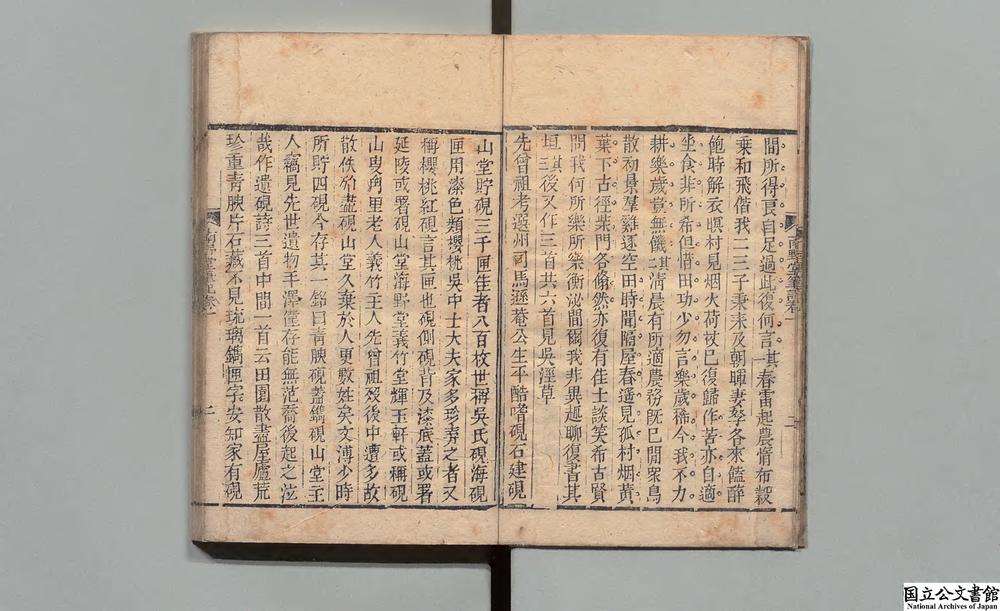 間所得良自足過此復何言其一春雷起農惰布穀
乘和飛偕我二三子秉耒及朝暉妻孥各來饁薜
飽時解衣暝村見烟火荷杖已復歸作苦亦自適
坐食非所希但惜田功少勿言樂歲稀今我不力
耕樂歲豈無饑其二清晨有所適農務旣已閒眾鳥
散初景羣雞逐空田時聞隔屋舂遥見孤村烟黃
葉下古徑柴門各翛然亦復有佳士談笑希古賢
問我何所樂所樂衡泌間爾我非異趣聊復書其
垣其三後又作三首共六首見吳淫草
先曾祖考選州司馬遜菴公生平酷嗜硯石建硯
山堂貯硯三千匣佳者八百枚世稱吳氏硯海硯
匣用漆色類櫻桃吳中士大夫家多珍弆之者又
稱櫻桃紅硯言其匣也硯側硯背及漆底蓋或署
延陵或署硯山堂海野堂義竹堂輝玉軒或稱硯
山叟角里老人義竹主人先曾祖歿後中遭多故
散佚殆盡硯山堂久棄於人更數姓矣文溥少時
所貯四硯今存其一銘曰青腴硯蓋鐫硯山堂主
人稿見先世遺物手澤僅存能無范喬後起之泣
哉作遺硯詩三首中間一首云田園散盡屋廬荒
珍重青腴片石藏不見琉璃鐫匣字安知家有硯
南野堂筆記卷一
二
国立公文書館
National Archives of Japan